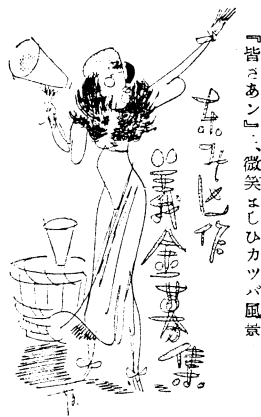 『皆さあン』、微笑ましひカツパ風景
東北凶作
義金募集